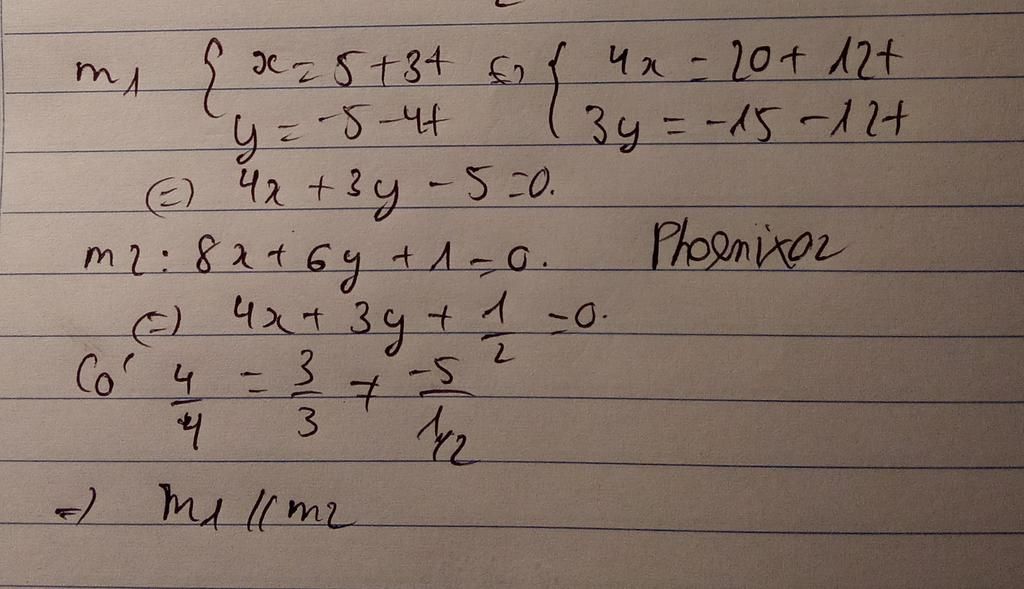 m1 { x = 5 + 3t ⇔ { 4x = 20 + 12t
y = -5 - 4t 3y = -15 - 12t
⇔ 4x + 3y - 5 = 0.
m2: 8x + 6y + 1 = 0. Phoenix02
⇔ 4x + 3y + 1/2 = 0.
Có 4/4 = 3/3 ≠ -5/(1/2)
⇒ m1 // m2